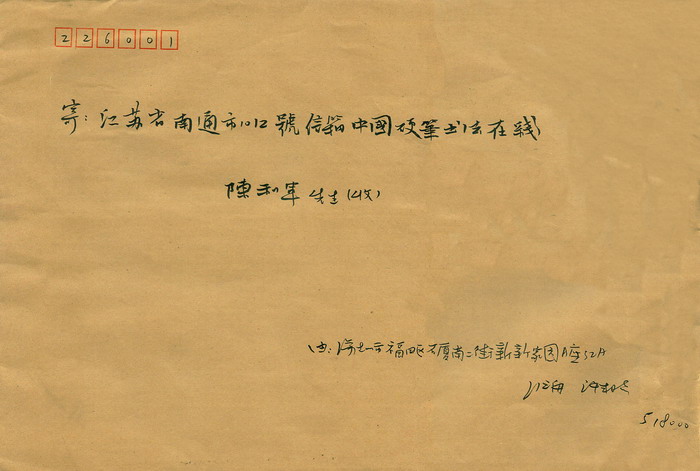 226001
寄:江苏省南通市1012號信箱中國硬筆书法在线
陳和年先生(收)
由:深圳市福田区厦南二街新新家园A座52A
518000